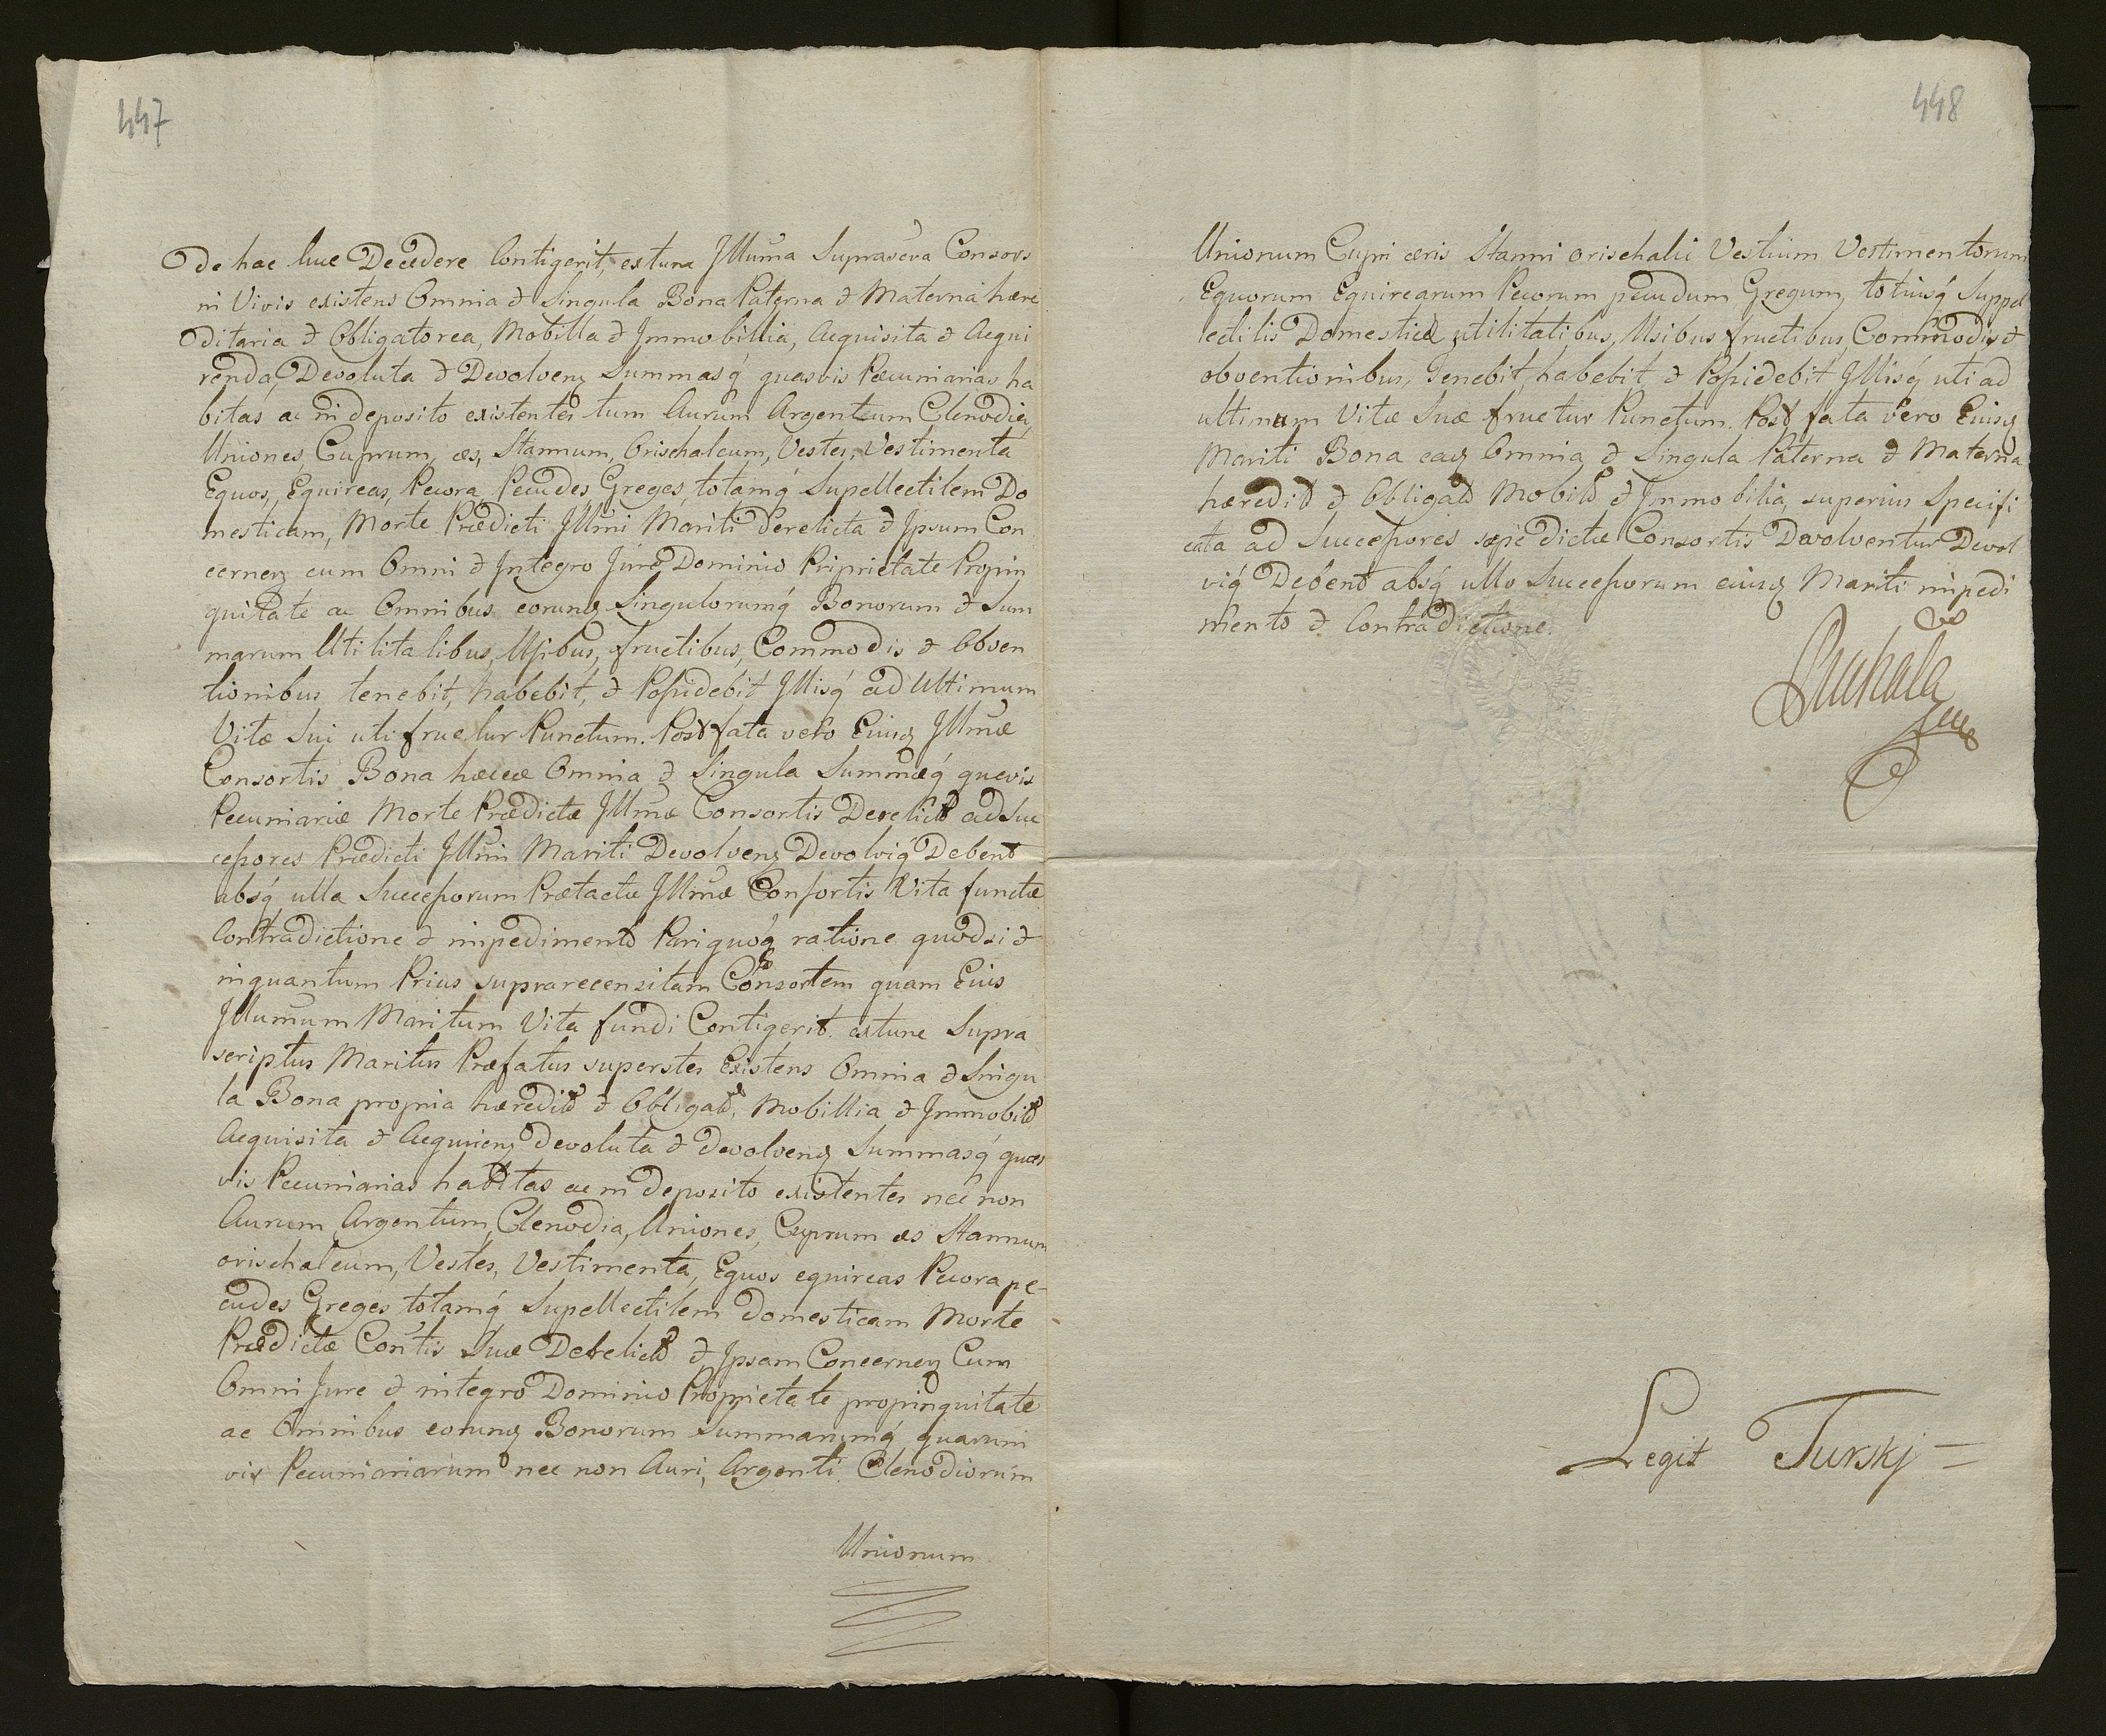 447
De hac luce Decedere Contigerit, extunc Jlluma Suprascra Consors
in Vivis existens Omnia & Singula Bona Paterna & Materna hære
ditaria & Obligatorea, Mobilla & Jmmobillia, Acquisita & Acqui
renda, Devoluta & Devolven Summasq quasvis Pecuniarias ha
bitas ac in deposito existentes tum Aurum Argenteum Clenodia,
Uniones, Cuprum, æs, Stannum, Orischalcum, Vestes, Vestimenta
Equos, Equireas, Pecora, Pecudes, Greges, totamq Supellectilem Do
mesticam, Morte Prædicti Jllmi Mariti Derelicta & Jpsum Con
cernen cum Omni & Jntegro Jure Dominio Priprietate Propin
quitate ac Omnibus eorund Singulorumq Bonorum & Sum
marum Utilitatibus, Usibus, fructibus, Commodis & Obven
tionibus tenebit, habebit, & Possidebit Jllisq ad Ultimum
Vitæ Sui uti fruetur Punctum. Post fata vero Eiusd Jllmæ
Consortis Bona hæcce Omnia & Singula Summæq quævis
Pecuniariæ Morte Prædictæ Jllmæ Consortis Derelict ad Suc
cessores Prædicti Jllmi Mariti Devolven Devolviq Debent
absq ulla Successorum Prætactæ Jllmæ Consortis Vita functæ
Contradictione & impedimento Pariquoq ratione quodsi &
inquantum Prius suprarecensitam Consortem quam Eius
Jllumum Maritum Vita fundi Contigerit extunc Supra
scriptus Maritus Præfatus superstes Existens Omnia & Singu
la Bona propria hæredit & Obligat, Mobillia & Jmmobil
Acquisita & Acquiren devoluta & devolven Summasq quas
vis Pecuniarias habitas ac in deposito existentes nec non
Aurum, Argentum, Clenodia, Uniones, Cuprum æs Stannum
orischalcum, Vestes, Vestimenta, Equos equireas Pecora pe-
cudes Greges totamq Supellectilem domesticam Morte
Prædictæ Contis Suæ Derelict & Jpsam Concernen Cum
Omni Jure & integro Dominio Proprietate propinquitate
ac Omnibus eorund Bonorum Summarumq quarum
vis Pecuniariarum nec non Auri, Argenti, Clenodiorum
Unionum
448
Unionum Cupri æris Stanni orischalci Vestium Vestimentorum
Equorum Equirearum Pecorum pecudum Gregum, totiusq Suppel
lectilis Domesticæ utilitatibus, Usibus fructibus, Commodis &
obventionibus, Tenebit, habebit, & Possidebit Jllisq uti ad
ultimum Vitæ Suæ fruetur Punctum. Post fata vero Eiusd
Mariti Bona ead Omnia & Singula Paterna & Materna
hæredit & Obligat Mobil & Jmmobilia, superius Specifi
cata ad Successores sæpe dictæ Consortis Devolventur Devol
viq Debent absq ullo Successorum eiusd Mariti impedi
mento & Contradictione.
Legit Turskj